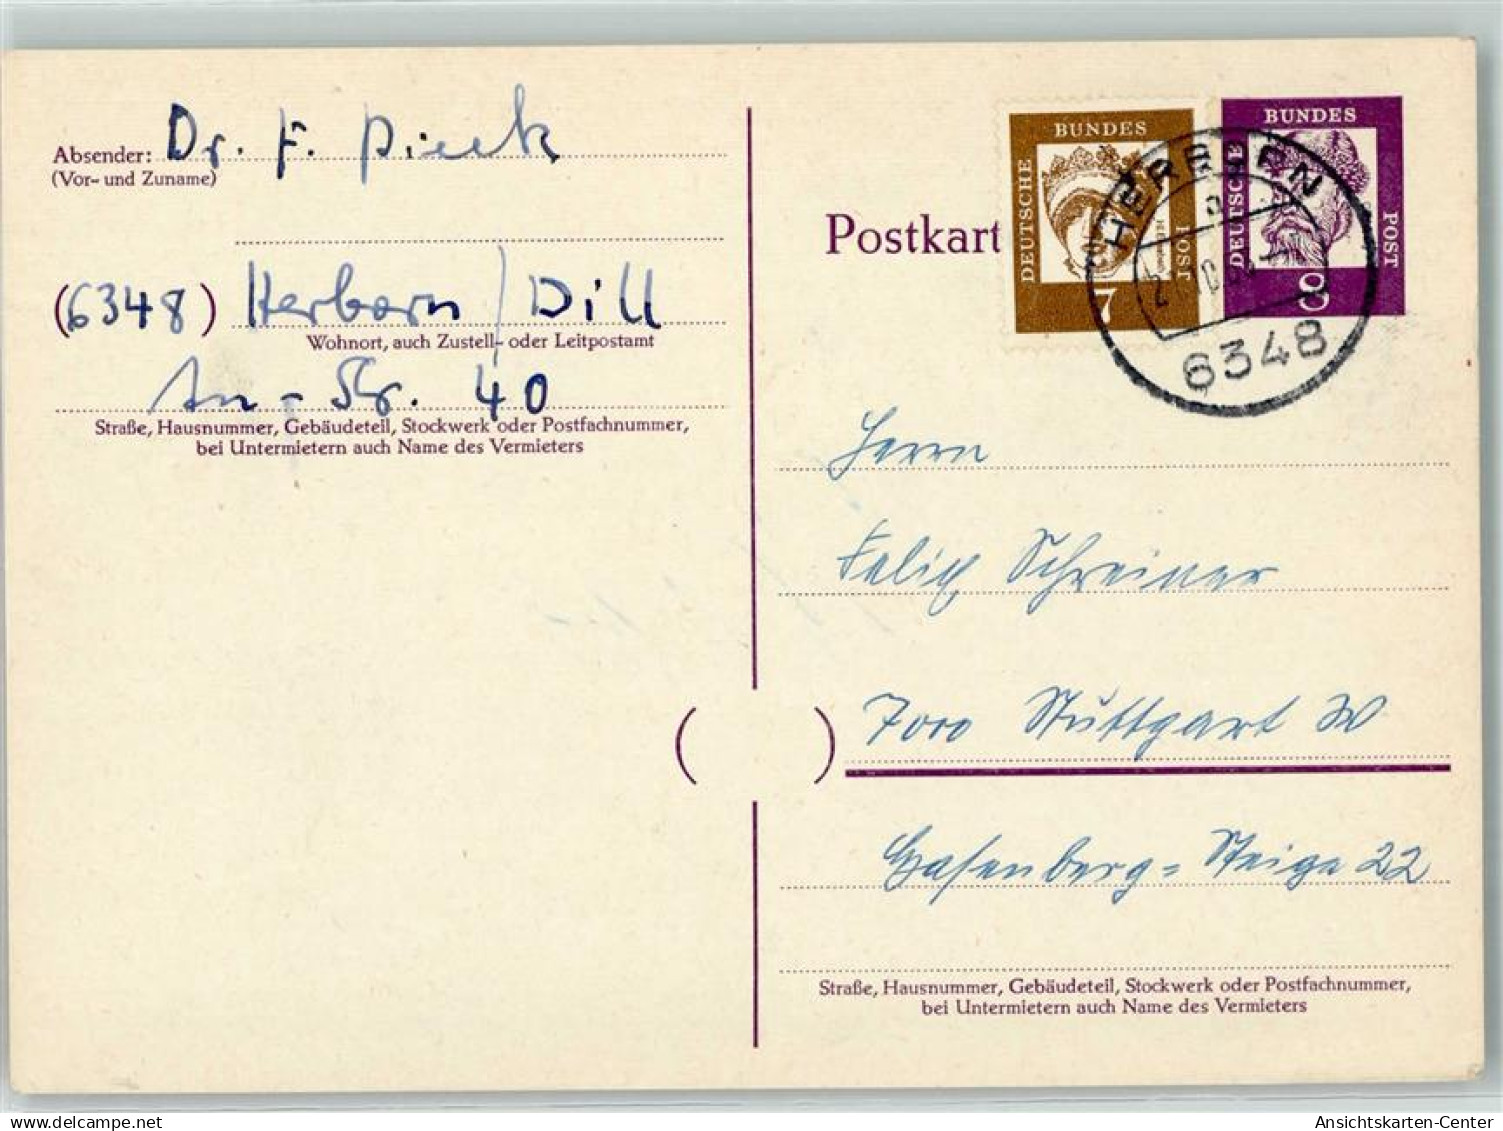 Absender: Dr. F. Pieek
(Vor- und Zuname)
(6348) Herborn / Dill
Wohnort, auch Zustell- oder Leitpostamt
Au - Str. 40
Straße, Hausnummer, Gebäudeteil, Stockwerk oder Postfachnummer,
bei Untermietern auch Name des Vermieters
Postkart
BUNDES
DEUTSCHE
POST
7
BUNDES
DEUTSCHE
POST
8
HERBORN
a
6348
Herrn
Felix Schreiner
( ) 7000 Stuttgart W
Hasenberg= Steige 22
Straße, Hausnummer, Gebäudeteil, Stockwerk oder Postfachnummer,
bei Untermietern auch Name des Vermieters
www.delcampe.net
Ansichtskarten-Center